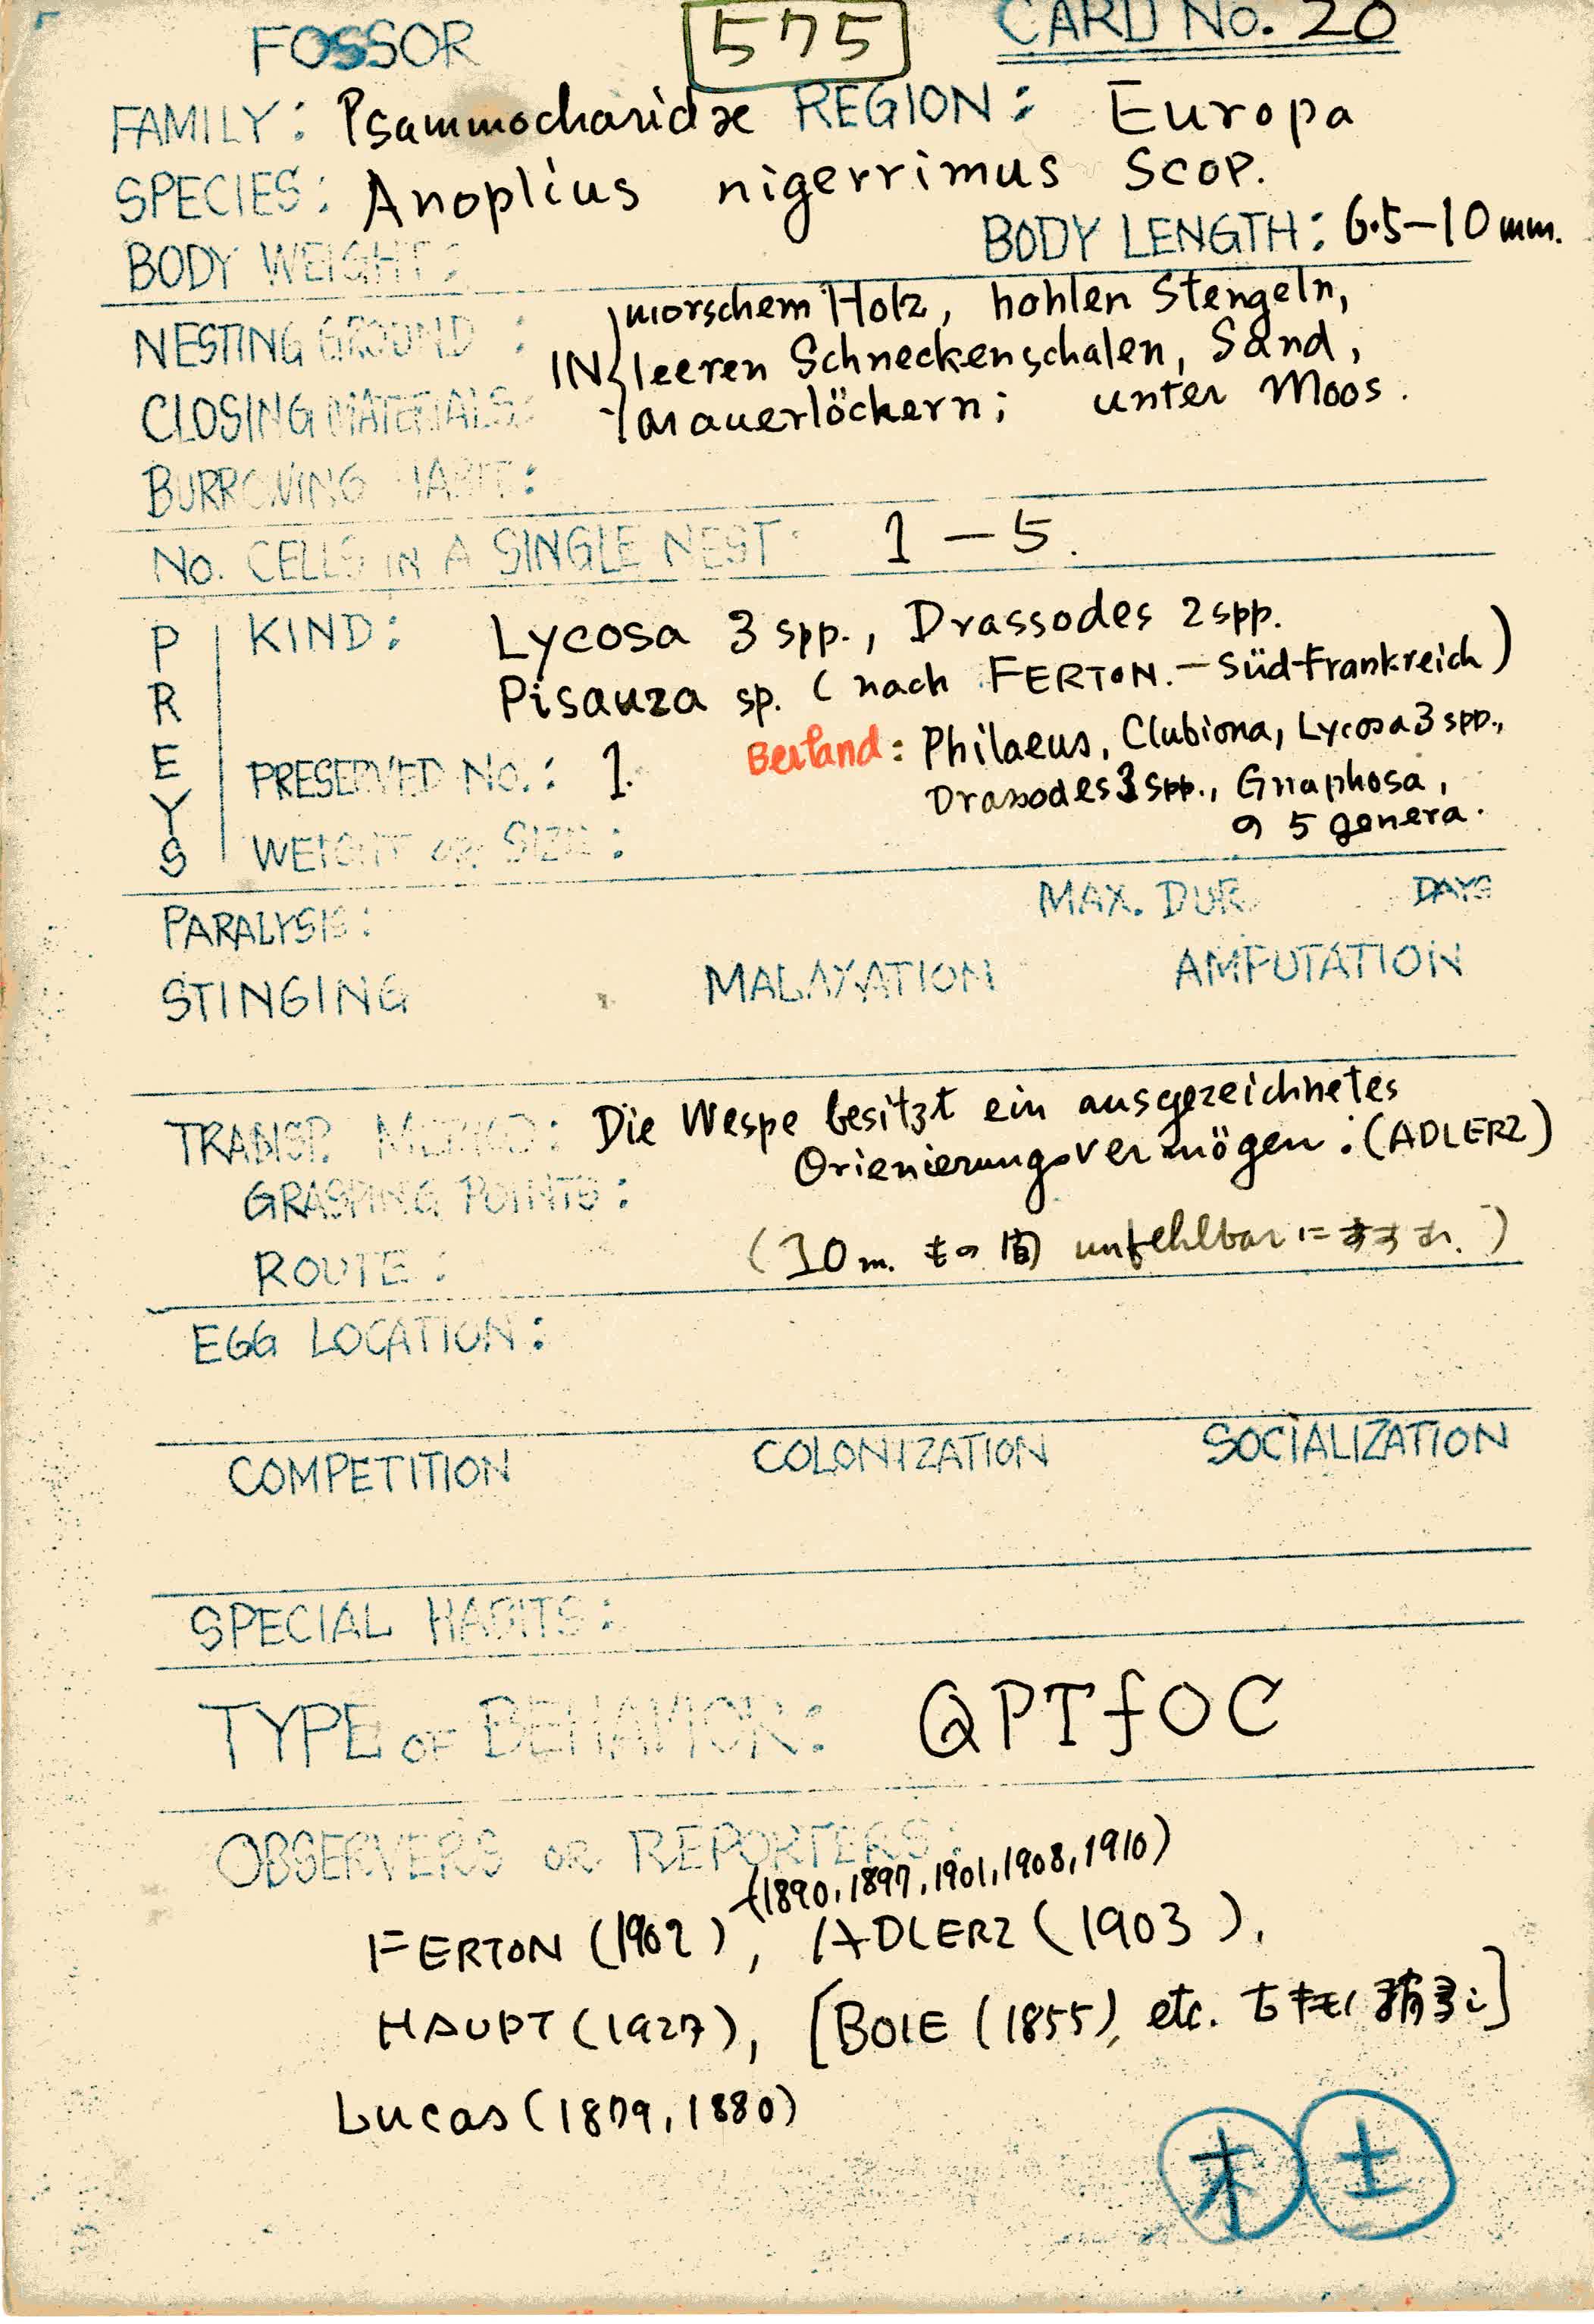 FOSSOR 575 CARD No. 20
FAMILY: Psammocharidæ REGION: Europa
SPECIES: Anoplius nigerrimus Scop.
BODY WEIGHT: BODY LENGTH: 6.5-10 mm.
NESTING GROUND: IN morschem Holz, hohlen Stengeln,
leeren Schneckenschalen, Sand,
CLOSING MATERIALS: Mauerlöckern; unter Moos.
BURROWING HABIT:
No. CELLS IN A SINGLE NEST: 1-5.
PREYS
KIND: Lycosa 3 spp., Drassodes 2 spp.
Pisauza sp. (nach FERTON.-Süd-Frankreich)
Berland: Philaeus, Clubiona, Lycosa 3 spp.,
PRESERVED No.: 1.
Drassodes 3 spp., Gnaphosa,
の 5 genera.
WEIGHT OR SIZE:
PARALYSIS: MAX. DUR. DAYS
STINGING MALAXATION AMPUTATION
TRANSP. METHOD: Die Wespe besitzt ein ausgezeichnetes
Orienierungsvermögen: (ADLERZ)
GRASPING POINTS:
ROUTE: (10 m. もの間 unfehlbar に)
EGG LOCATION:
COMPETITION COLONIZATION SOCIALIZATION
SPECIAL HABITS:
TYPE OF BEHAVIOR: QPTfOC
OBSERVERS OR REPORTERS:
(1890, 1897, 1901, 1908, 1910)
FERTON (1902), ADLERZ (1903),
HAUPT (1927), [BOIE (1855), etc.]
Lucas (1879, 1880)
木 土